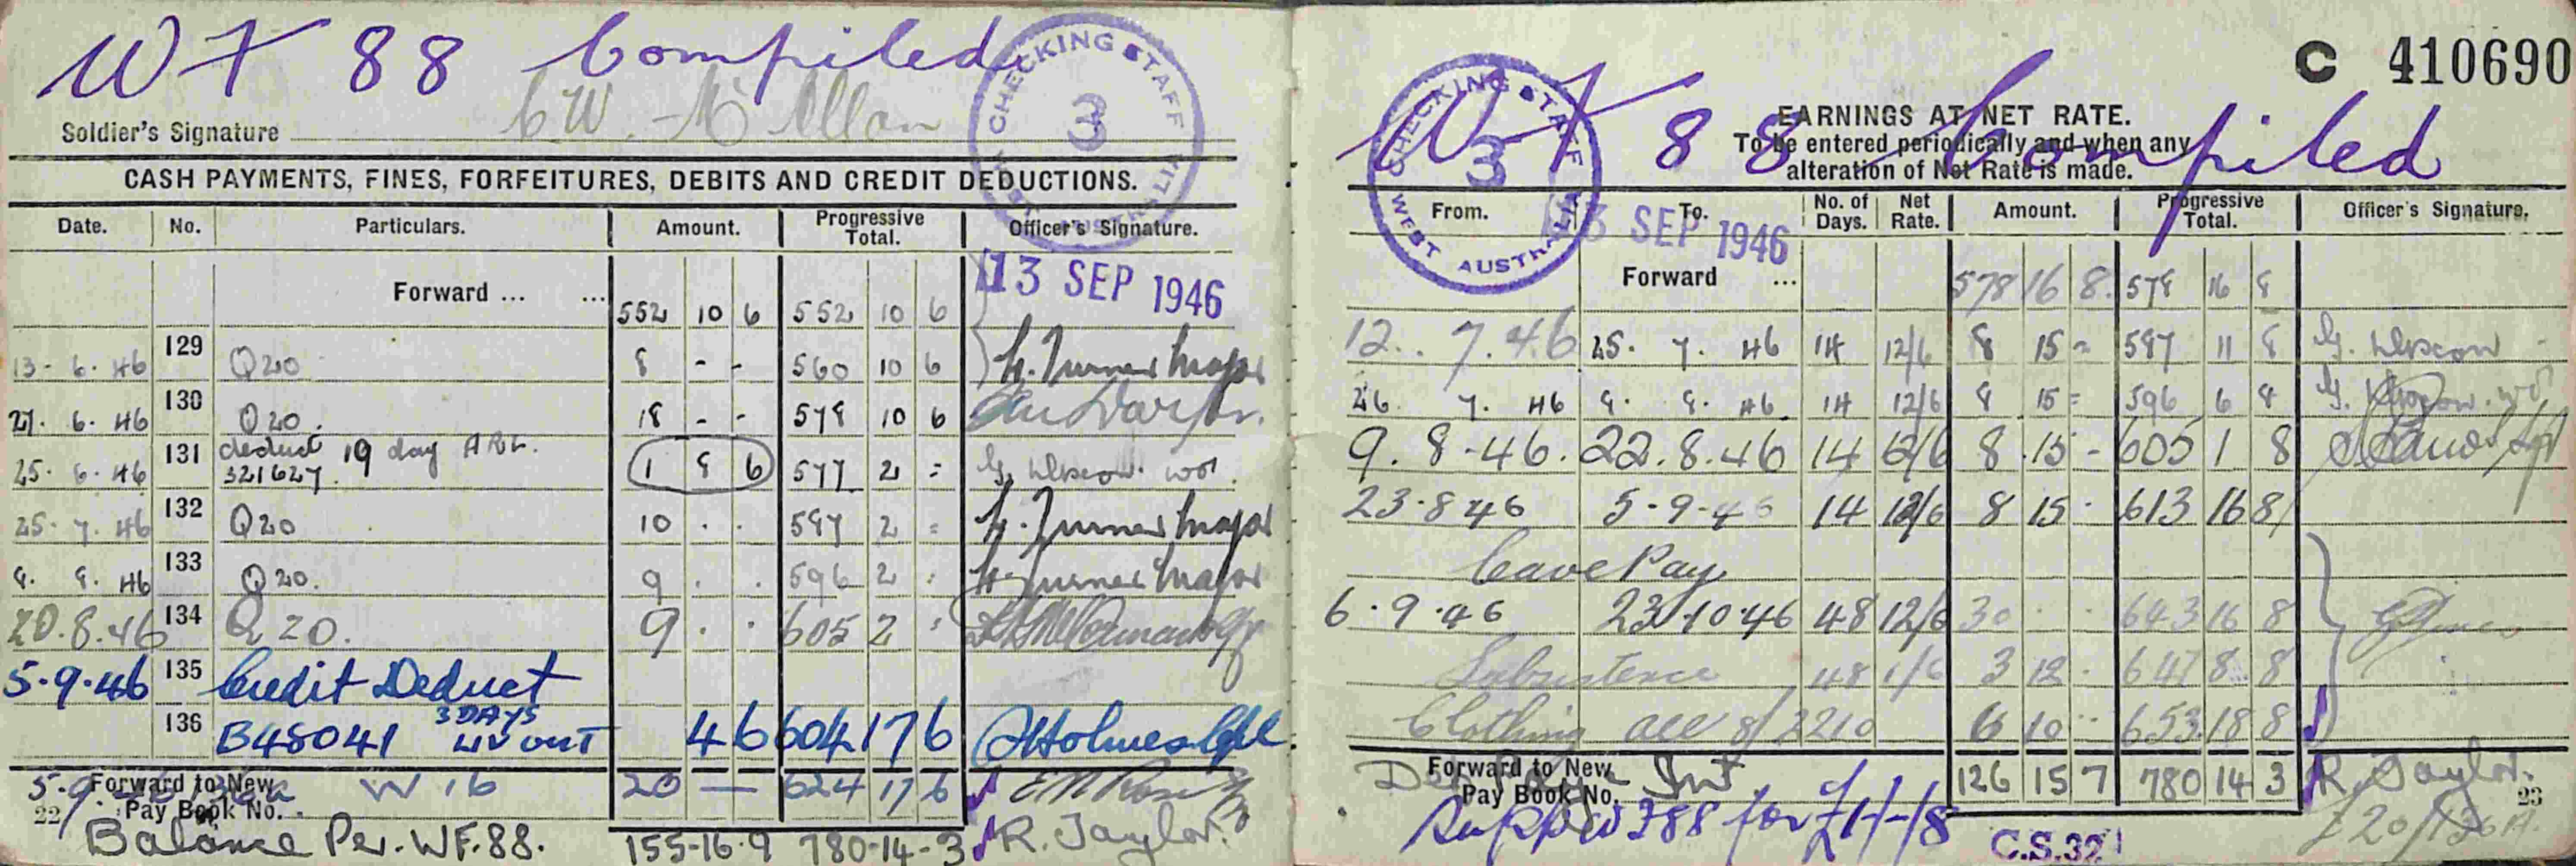 WF 88 Compiled
CHECKING STAFF
3
WEST AUSTRALIA
Soldier's Signature C W. McAllan
CASH PAYMENTS, FINES, FORFEITURES, DEBITS AND CREDIT DEDUCTIONS.
Date. No. Particulars. Amount. Progressive Total. Officer's Signature.
13 SEP 1946
Forward ... ... 552 10 6 552 10 6
13. 6. 46 129 Q20 8 - - 560 10 6 H. Turner Major
27. 6. 46 130 Q20. 18 - - 578 10 6
25. 6. 46 131 deduct 19 day ARL. 321627. 1 8 6 577 2 =
25. 7. 46 132 Q20 10 . . 587 2 = H. Turner Major
8. 8. 46 133 Q20. 9 . . 596 2 : H. Turner Major
20.8.46 134 Q 20. 9 . . 605 2 :
5.9.46 135 Credit Deduct
136 B48041 3 DAYS LIV OUT 4 6 604 17 6 Holmes
5.9 W 16 20 — 624 17 6
Forward to New Pay Book No.
22
Balance Per. WF. 88. 155-16-9 780-14-3 R. Taylor.
C 410690
WF 88 Compiled
CHECKING STAFF
3
WEST AUSTRALIA
EARNINGS AT NET RATE.
To be entered periodically and when any
alteration of Net Rate is made.
From. To. No. of Days. Net Rate. Amount. Progressive Total. Officer's Signature.
13 SEP 1946
Forward ... 578 16 8. 578 16 8
12. 7.46 25. 7. 46 14 12/6 8 15 = 587 11 8
26. 7. 46 8. 8. 46 14 12/6 8 15 = 596 6 8
9. 8-46. 22.8.46 14 12/6 8 .15 - 605 1 8
23.8 46 5-9-46 14 12/6 8 15 . 613 16 8
Leave Pay
6.9.46 23.10.46 48 12/6 30 . . 643 16 8
Subsistence 48 1/6 3 12 . 647 8 8
Clothing all 8/2210 6 10 . 653 18 8
Forward to New Pay Book No. 126 15 7 780 14 3 R. Taylor.
23
C.S.32